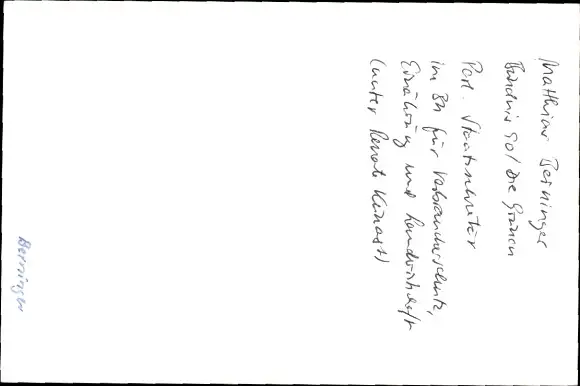 Matthias Berninger
Bündnis 90/Die Grünen
Parl. Staatssekretär
im BM für Verbraucherschutz,
Ernährung und Landwirtschaft
(unter Renate Künast)
Berninger